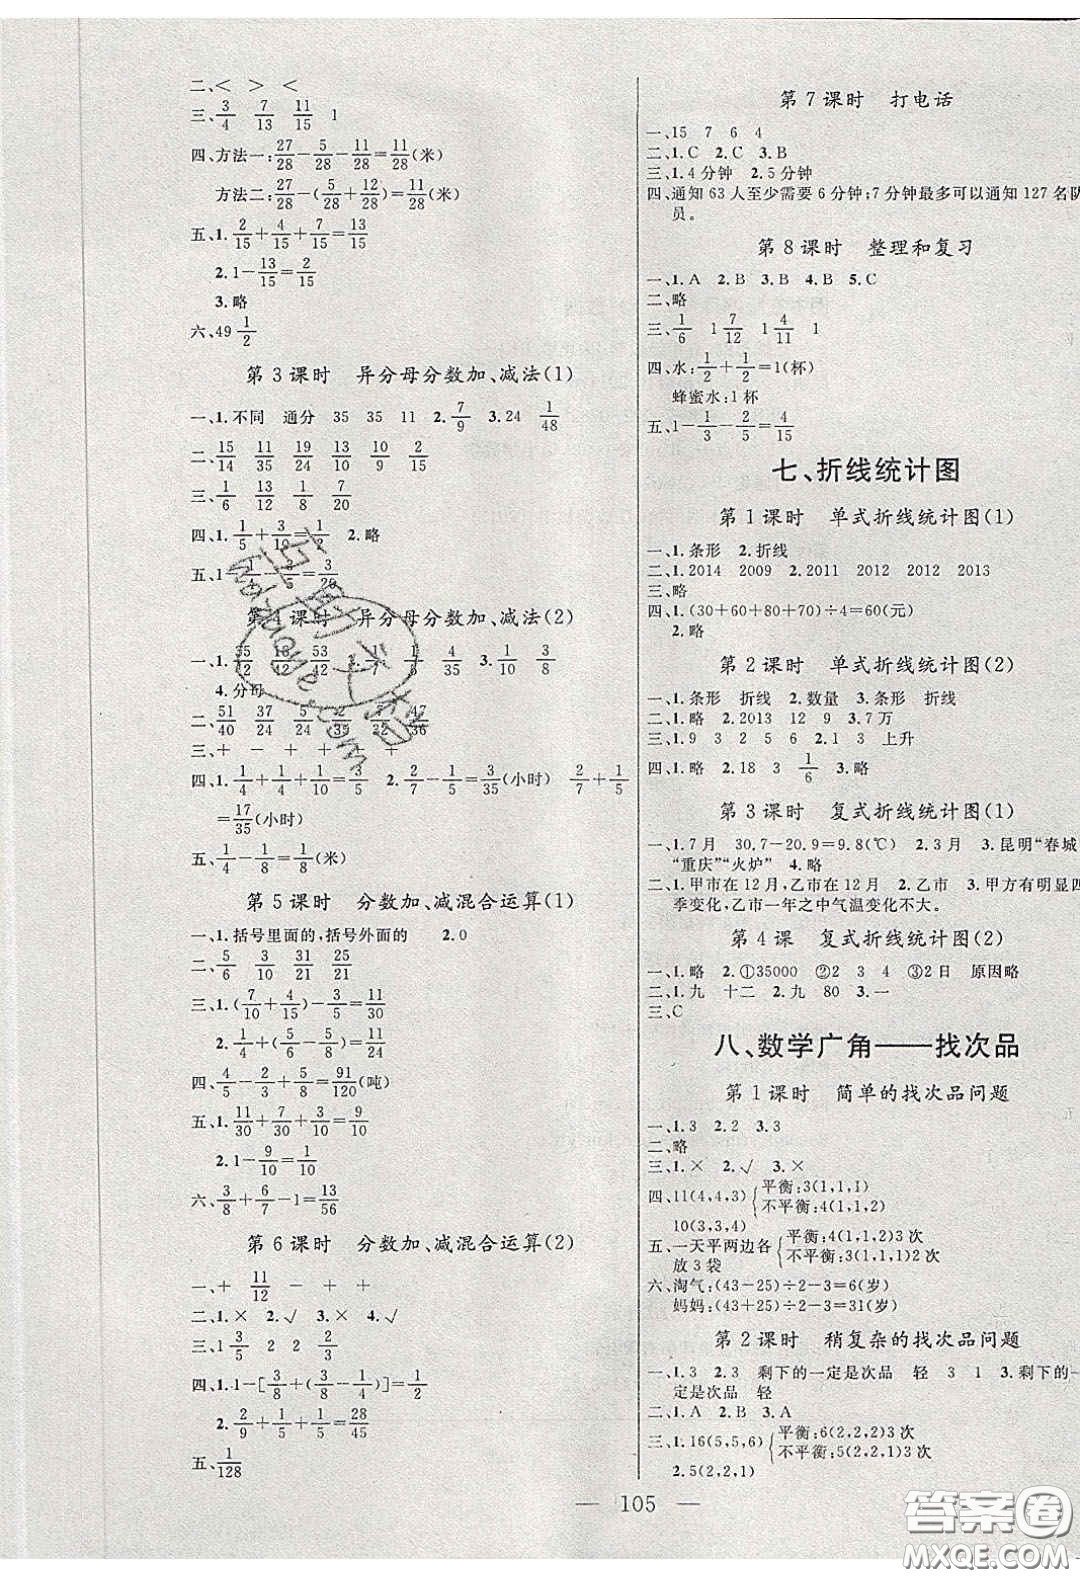 二、< > <
三、3/4 7/13 11/15 1
四、方法一:27/28-5/28-11/28=11/28(米)
方法二:27/28-(5/28+12/28)=11/28(米)
五、1.2/15+4/15+7/15=13/15
2.1-13/15=2/15
3.略
六、49 1/2
第3课时 异分母分数加、减法(1)
一、1.不同 通分 35 35 11 2.7/9 3.24 1/48
二、15/14 11/35 19/24 13/24 10/9
三、1/6 13/12 1/8 7/20
四、1.1/5+3/10=1/2 2.略
五、1- -3/5=3/20
第4课时 异分母分数加、减法(2)
一、1. 53/42 4/35 3.1/10 3/8
4.分母
二、51/40 37/24 5/24
三、+ - + + + +
四、1.1/4+1/4+1/4=3/4 2.2/7-1/5=3/35(小时) 2/7+1/5
=17/35(小时)
五、1/4-1/8=1/8(米)
第5课时 分数加、减混合运算(1)
一、1.括号里面的,括号外面的 2.0
二、5/6 3/10 31/21 25/21
三、1.(7/10+4/15)-3/5=11/30
2.1/4+(5/6-5/8)=11/24
四、4/5-2/3+5/8=91/120(吨)
五、1.11/30+7/30+3/10
2.1-9/10=1/10
六、3/8+6/7-1=13/56
第6课时 分数加、减混合运算(2)
一、+ 11/12 - + +
二、1.× 2.√ 3.× 4.√
三、1 3/5 2 2 2/3
四、1.1-[3/8+(3/8-1/4)]=1/2
2.2/9+1/5+1/5=28/45
五、1/128
第7课时 打电话
一、15 7 6 4
二、1.C 2.C 3.B
三、1.4分钟 2.5分钟
四、通知63人至少需要6分钟;7分钟最多可以通知127名队
员。
第8课时 整理和复习
一、1.A 2.B 3.B 4.B 5.C
二、略
三、1/6 1 7/12 1 4/11 1
四、水:1/2+1/2=1(杯)
蜂蜜水:1杯
五、1-1/3-2/5=4/15
七、折线统计图
第1课时 单式折线统计图(1)
一、1.条形 2.折线
二、1.2014 2009 2.2011 2012 2012 2013
三、略
四、1.(30+60+80+70)÷4=60(元)
2.略
第2课时 单式折线统计图(2)
一、1.条形 折线 2.数量 3.条形 折线
二、1.略 2.2013 12 9 3.7万
三、1.9 3 2 5 6 2.1 3 上升
四、1.略 2.18 3 1/6 3.略
第3课时 复式折线统计图(1)
一、1.7月 30.7-20.9=9.8(℃) 2.3月 3.昆明“春城
“重庆”“火炉” 4.略
二、1.甲市在12月,乙市在12月 2.乙市 3.甲方有明显四
季变化,乙市一年之中气温变化不大。
第4课 复式折线统计图(2)
一、1.略 2.①35000 ②2 3 4 ③2日 原因略
二、1.九 十二 2.九 80 3.一
三、C
八、数学广角——找次品
第1课时 简单的找次品问题
一、1.3 2.2 3.3
二、略
三、1.× 2.√ 3.×
四、11(4,4,3){平衡:3(1,1,1)
不平衡:4(1,1,2)
10(3,3,4)
五、一天平两边各{平衡:4(1,1,2)3次
放3袋 不平衡:3(1,1,1)2次
六、淘气:(43-25)÷2-3=6(岁)
妈妈:(43+25)÷2-3=31(岁)
第2课时 稍复杂的找次品问题
一、1.3 2.3 剩下的一定是次品 轻 3 1 3.剩下的一
定是次品 轻
二、1.A 2.B 3.A
三、1.16(5,5,6){平衡:6(2,2,2)3次
不平衡:5(2,2,1)3次
2.5(2,2,1)
105
答案圈
MXQE.COM